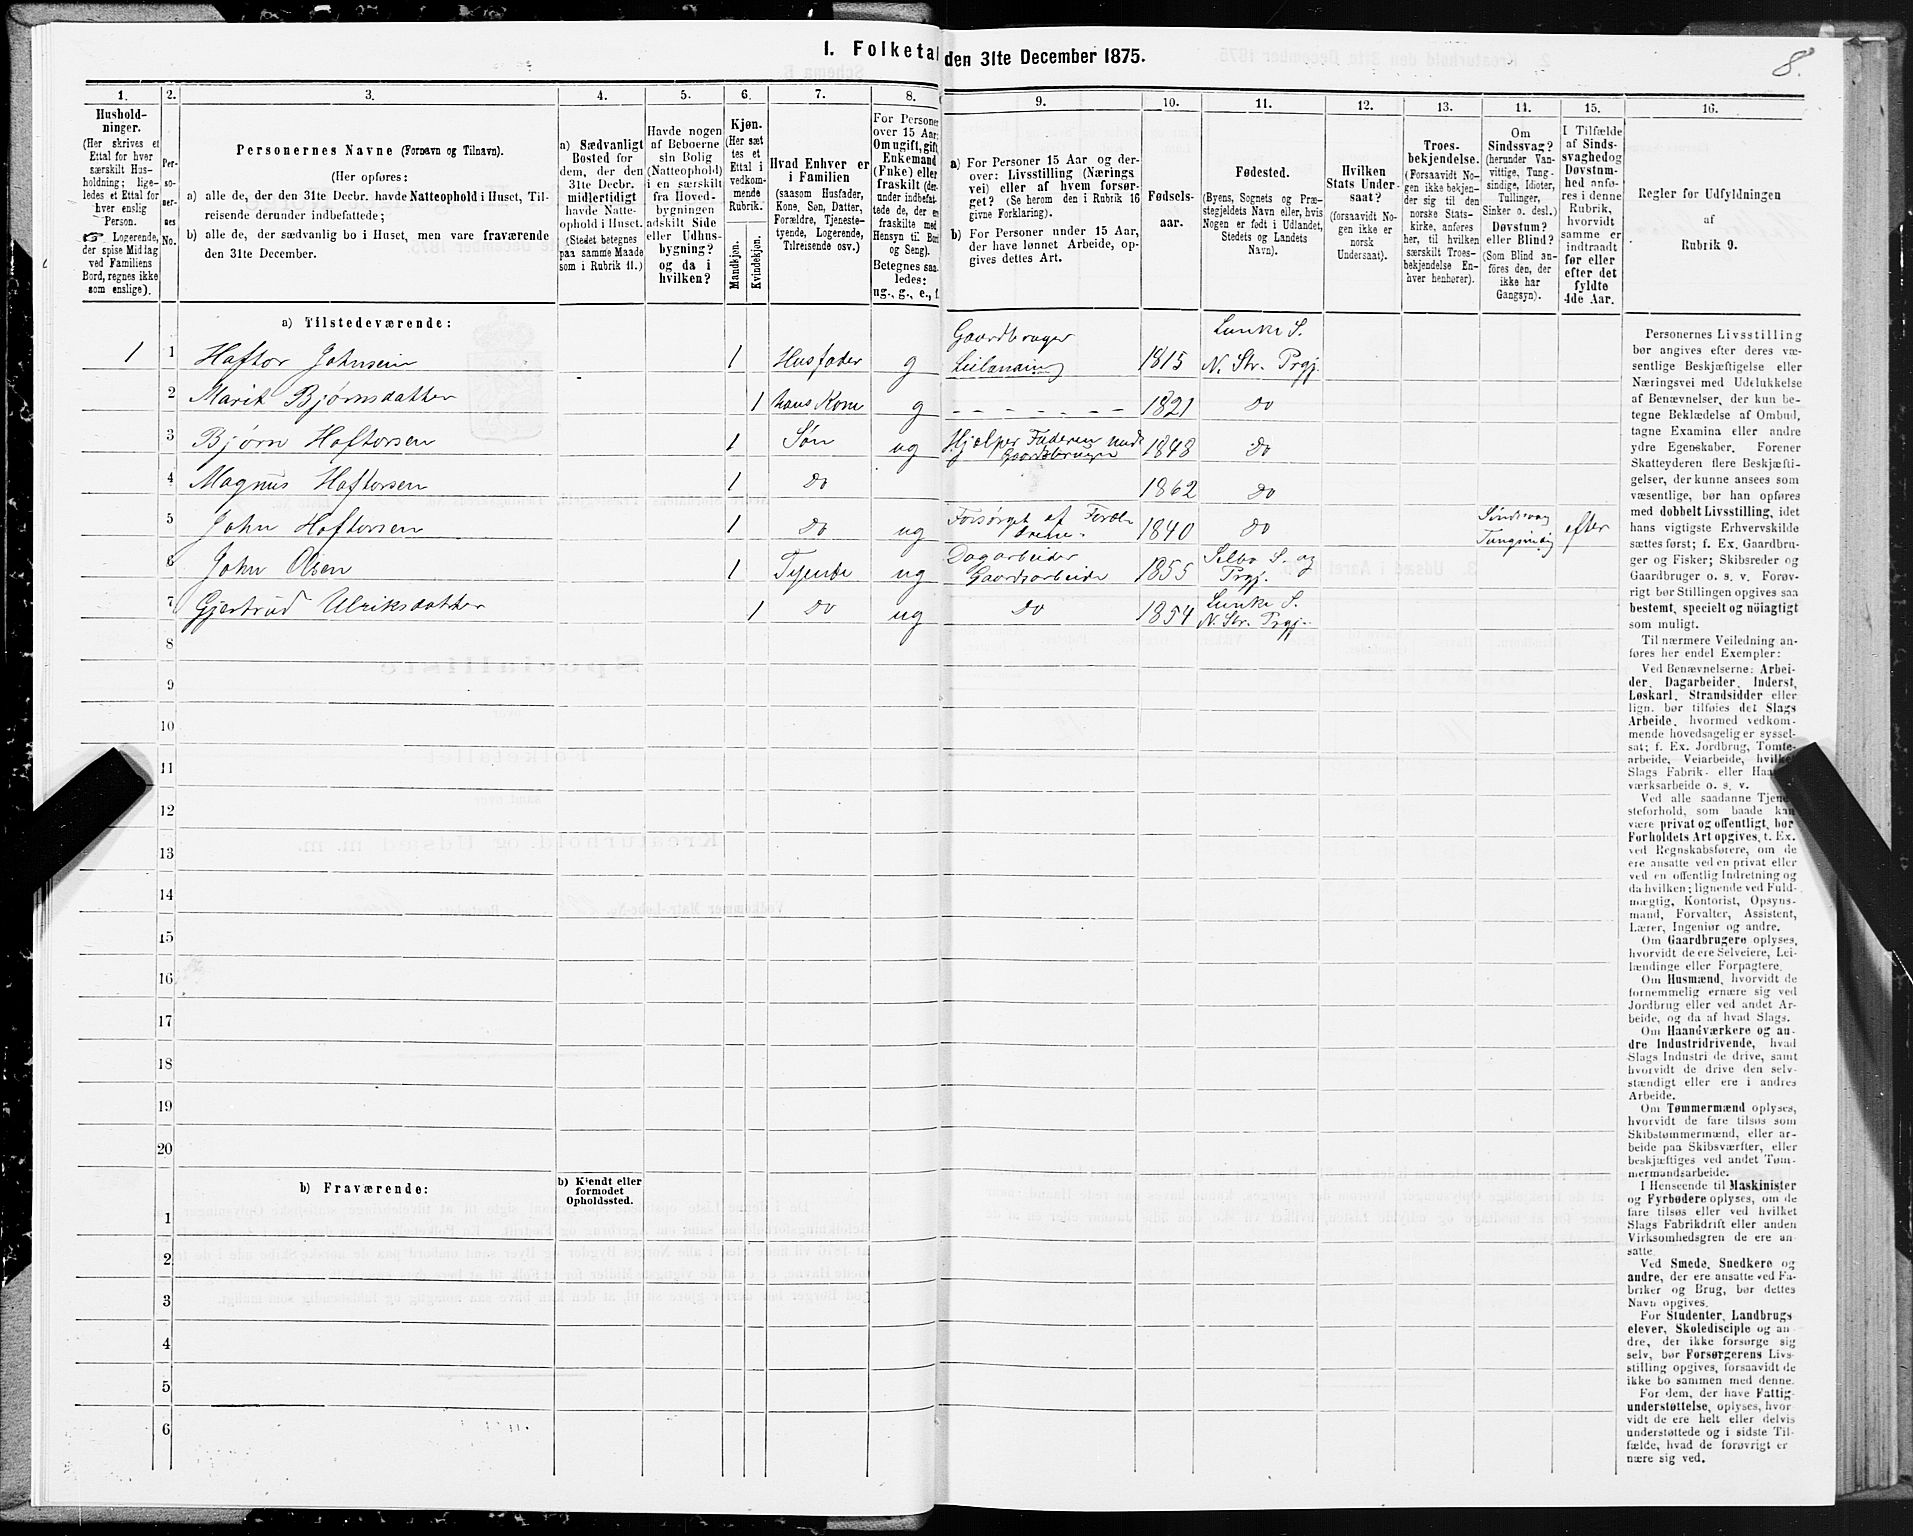 1. Folketal den 31te December 1875.
8.
1.
Hushold-
ninger.
(Her skrives et
Ettal for hver
særskilt Hus-
holdning; lige-
ledes et Ettal for
hver enslig
Person.
Logerende,
der spise Midlag
ved Familiens
Bord, regnes ikke
som enslige).
2.
Per-
so-
ner-
nes
No.
3.
Personernes Navne (Fornavn og Tilnavn).
(Her opføres:
a) alle de, der den 31te Decbr. havde Natteophold i Huset, Til-
reisende derunder indbefattede;
b) alle de, der sædvanlig bo i Huset, men vare fraværende
den 31te December.
4.
a) Sædvanligt
Bosted for
dem, der den
31te Decbr.
midlertidigt
havde Natte-
ophold i Huset.
(Stedet betegnes
paa samme Maade
som i Rubrik 11.)
5.
Havde nogen
af Beboerne
sin Bolig
(Natteophold)
i en særskilt
fra Hoved-
bygningen
adskilt Side
eller Udhus-
bygning?
og da i
hvilken?
6.
Kjøn.
(Her sæt
tes et
Ettal i
vedkom-
mende
Rubrik.)
Mandkjøn.
Kvindekjøn.
7.
Hvad Enhver er
i Familien
(saasom Husfader,
Kone, Søn, Datter,
Forældre, Tjeneste-
tyende, Logerende,
Tilreisende osv.)
8.
For Personer
over 15 Aar:
Om ugift, gift,
Enkemand
(Enke) eller
fraskilt (der-
under indbefat-
tede de, der er
fraskilte med
Hensyn til Bord
og Seng).
Betegnes saa-
ledes:
ug., g., e., f.
9.
a) For Personer 15 Aar og der-
over: Livsstilling (Nærings-
vei) eller af hvem forsør-
get? (Se herom den i Rubrik 16
givne Forklaring).
b) For Personer under 15 Aar,
der have lønnet Arbeide, op-
gives dettes Art.
10.
Fødsels-
aar.
11.
Fødested.
(Byens, Sognets og Præ-
stegjeldets Navn eller, hvis
Nogen er født i Udlandet,
Stedets og Landets
Navn).
12.
Hvilken
Stats Under-
saat?
(forsaavidt No-
gen ikke er
norsk
Undersaat).
13.
Troes-
bekjendelse.
(Forsaavidt No-
gen ikke bekjen-
der sig til den
norske Stats-
kirke, anføres
her, til hvilken
særskilt Troes-
bekjendelse En-
hver henhører).
14.
Om
Sindssvag?
(herunder Van-
vittige, Tung-
sindige, Idioter,
Tullinger,
Sinker o. desl.)
Døvstum?
eller Blind?
(Som Blind an-
føres den, der
ikke har
Gangsyn).
15.
I Tilfælde
af Sinds-
svaghed og
Døvstum-
hed anfø-
res i denne
Rubrik,
hvorvidt
samme er
indtraadt
før eller
efter det
fyldte
4de Aar.
16.
Regler for Udfyldningen
af
Rubrik 9.
a) Tilstedeværende:
1 1 Haftor Johnsen 1 Husfader g Gaardbruger Leilænding 1815 Lunke S. N. Str. Prgj.
2 Marit Bjørnsdatter 1 hans Kone g - - - - - - - 1821 Do
3 Bjørn Haftorsen 1 Søn ug Hjelper Faderen med Gaardsbruget 1848 Do
4 Magnus Haftorsen 1 Do 1862 Do
5 John Haftorsen 1 Do ug Forsørget af Foræl- drene. 1840 Do Sindssvag Tungsindig efter
6 John Olsen 1 Tjende ug Dagarbeider Gaardsarbeide 1855 Selbo S. og Prgj.
7 Gjertrud Ulriksdatter 1 Do ug Do 1854 Lunke S. N. Str. Prgj.
8
9
10
11
12
13
14
15
16
17
18
19
20
b) Fraværende:
b) Kjendt eller
formodet
Opholdssted.
1
2
3
4
5
6
Personernes Livsstilling
bør angives efter deres væ-
sentlige Beskjæftigelse eller
Næringsvei med Udelukkelse
af Benævnelser, der kun be-
tegne Beklædelse af Ombud,
tagne Examina eller andre
ydre Egenskaber. Forener
Skatteyderen flere Beskjæfti-
gelser, der kunne ansees som
væsentlige, bør han opføres
med dobbelt Livsstilling, idet
hans vigtigste Erhvervskilde
sættes først; f. Ex. Gaardbru-
ger og Fisker; Skibsreder og
Gaardbruger o. s. v. Forøv-
rigt bør Stillingen opgives saa
bestemt, specielt og nöiagtigt
som muligt.
Til nærmere Veiledning an-
føres her endel Exempler:
Ved Benævnelserne: Arbei-
der, Dagarbeider, Inderst,
Løskarl, Strandsidder eller
lign. bør tilføies det Slags
Arbeide, hvormed vedkom-
mende hovedsagelig er syssel-
sat; f. Ex. Jordbrug, Tomte-
arbeide, Veiarbeide, hvilket
Slags Fabrik- eller Haand-
værksarbeide o. s. v.
Ved alle saadanne Tjene-
steforhold, som baade kan
være privat og offentligt, bør
Forholdets Art opgives, t. Ex.
ved Regnskabsførere, om de
ere ansatte ved en privat eller
ved en offentlig Indretning og
da hvilken; lignende ved Fuld-
mægtig, Kontorist, Opsyns-
mand, Forvalter, Assistent,
Lærer, Ingeniør og andre.
Om Gaardbrugere oplyses,
hvorvidt de ere Selveiere, Lei-
lændinge eller Forpagtere.
Om Husmænd, hvorvidt de
fornemmelig ernære sig ved
Jordbrug eller ved andet Ar-
beide, og da af hvad Slags.
Om Haandværkere og an-
dre Industridrivende, hvad
Slags Industri de drive, samt
hvorvidt de drive den selv-
stændigt eller ere i andres
Arbeide.
Om Tømmermænd oplyses,
hvorvidt de fare tilsøs som
Skibstømmermænd, eller ar-
beide paa Skibsværfter, eller
beskjæftiges ved andet Tøm-
mermandsarbeide.
I Henseende til Maskinister
og Fyrbødere oplyses, om de
fare tilsøs eller ved hvilket
Slags Fabrikdrift eller anden
Virksomhedsgren de ere an-
satte.
Ved Smede, Snedkere og
andre, der ere ansatte ved Fa-
briker og Brug, bør dettes
Navn opgives.
For Studenter, Landbrugs-
elever, Skoledisciple og an-
dre, der ikke forsørge sig
selv, bør Forsørgerens Livs-
stilling opgives, forsaavidt de
ikke bo sammen med denne.
For dem, der have Fattig-
understøttelse, oplyses, hvor-
vidt de ere helt eller delvis
understøttede og i sidste Til-
fælde, hvad de forøvrigt er
nære sig ved.